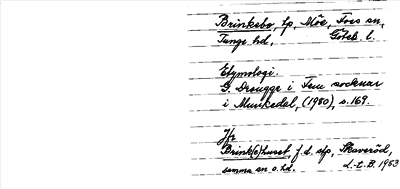 Brinkebo, tp, Möe, Foss sn,
Tunge hd, Göteb l.
Etymologi.
G. Drougge i Fem socknar
i Munkedal, (1980), s. 169.
Jfr
Brink(e)huset, f.d. stp, Skaveröd,
samma sn o. hd. d.-t. B. 1953